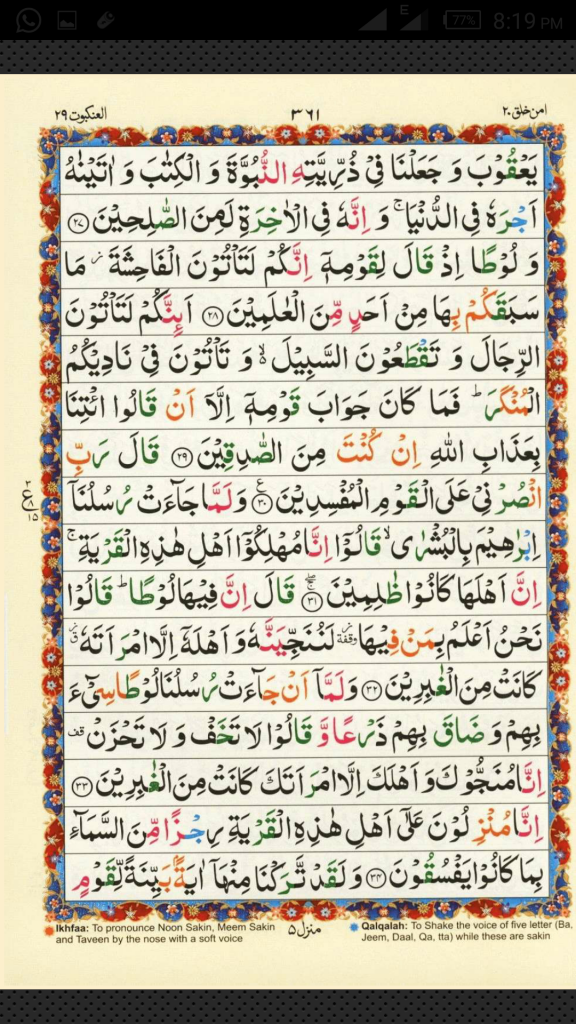 E 77% 8:19 PM
العنكبوت ٢٩ ٣٦١ امن خلق ٢٠
يَعْقُوْبَ وَ جَعَلْنَا فِيْ ذُرِّيَّتِهِ النُّبُوَّةَ وَ الْكِتٰبَ وَ اٰتَيْنٰهُ
اَجْرَهٗ فِي الدُّنْيَا ۚ وَ اِنَّهٗ فِي الْاٰخِرَةِ لَمِنَ الصّٰلِحِيْنَ ﴿٢٧﴾
وَ لُوْطًا اِذْ قَالَ لِقَوْمِهٖۤ اِنَّكُمْ لَتَاْتُوْنَ الْفَاحِشَةَ ؗ مَا
سَبَقَكُمْ بِهَا مِنْ اَحَدٍ مِّنَ الْعٰلَمِيْنَ ﴿٢٨﴾ اَىِٕنَّكُمْ لَتَاْتُوْنَ
الرِّجَالَ وَ تَقْطَعُوْنَ السَّبِيْلَ ۙ۬ وَ تَاْتُوْنَ فِيْ نَادِيْكُمُ
الْمُنْكَرَ ؕ فَمَا كَانَ جَوَابَ قَوْمِهٖۤ اِلَّاۤ اَنْ قَالُوا ائْتِنَا
بِعَذَابِ اللّٰهِ اِنْ كُنْتَ مِنَ الصّٰدِقِيْنَ ﴿٢٩﴾ قَالَ رَبِّ
انْصُرْنِيْ عَلَى الْقَوْمِ الْمُفْسِدِيْنَ ﴿٣٠﴾ وَ لَمَّا جَآءَتْ رُسُلُنَاۤ
اِبْرٰهِيْمَ بِالْبُشْرٰى ۙ قَالُوْۤا اِنَّا مُهْلِكُوْۤا اَهْلِ هٰذِهِ الْقَرْيَةِ ۚ
اِنَّ اَهْلَهَا كَانُوْا ظٰلِمِيْنَ ﴿٣١﴾ قَالَ اِنَّ فِيْهَا لُوْطًا ؕ قَالُوْا
نَحْنُ اَعْلَمُ بِمَنْ فِيْهَا ؗ وقفة لَنُنَجِّيَنَّهٗ وَ اَهْلَهٗۤ اِلَّا امْرَاَتَهٗ ؗ ق
كَانَتْ مِنَ الْغٰبِرِيْنَ ﴿٣٢﴾ وَ لَمَّاۤ اَنْ جَآءَتْ رُسُلُنَا لُوْطًا سِيْٓءَ
بِهِمْ وَ ضَاقَ بِهِمْ ذَرْعًا وَّ قَالُوْا لَا تَخَفْ وَ لَا تَحْزَنْ قف
اِنَّا مُنَجُّوْكَ وَ اَهْلَكَ اِلَّا امْرَاَتَكَ كَانَتْ مِنَ الْغٰبِرِيْنَ ﴿٣٣﴾
اِنَّا مُنْزِلُوْنَ عَلٰۤى اَهْلِ هٰذِهِ الْقَرْيَةِ رِجْزًا مِّنَ السَّمَآءِ
بِمَا كَانُوْا يَفْسُقُوْنَ ﴿٣٤﴾ وَ لَقَدْ تَّرَكْنَا مِنْهَاۤ اٰيَةًۢ بَيِّنَةً لِّقَوْمٍ
منزل ٥
Ikhfaa: To pronounce Noon Sakin, Meem Sakin
and Taveen by the nose with a soft voice
Qalqalah: To Shake the voice of five letter (Ba,
Jeem, Daal, Qa, tta) while these are sakin